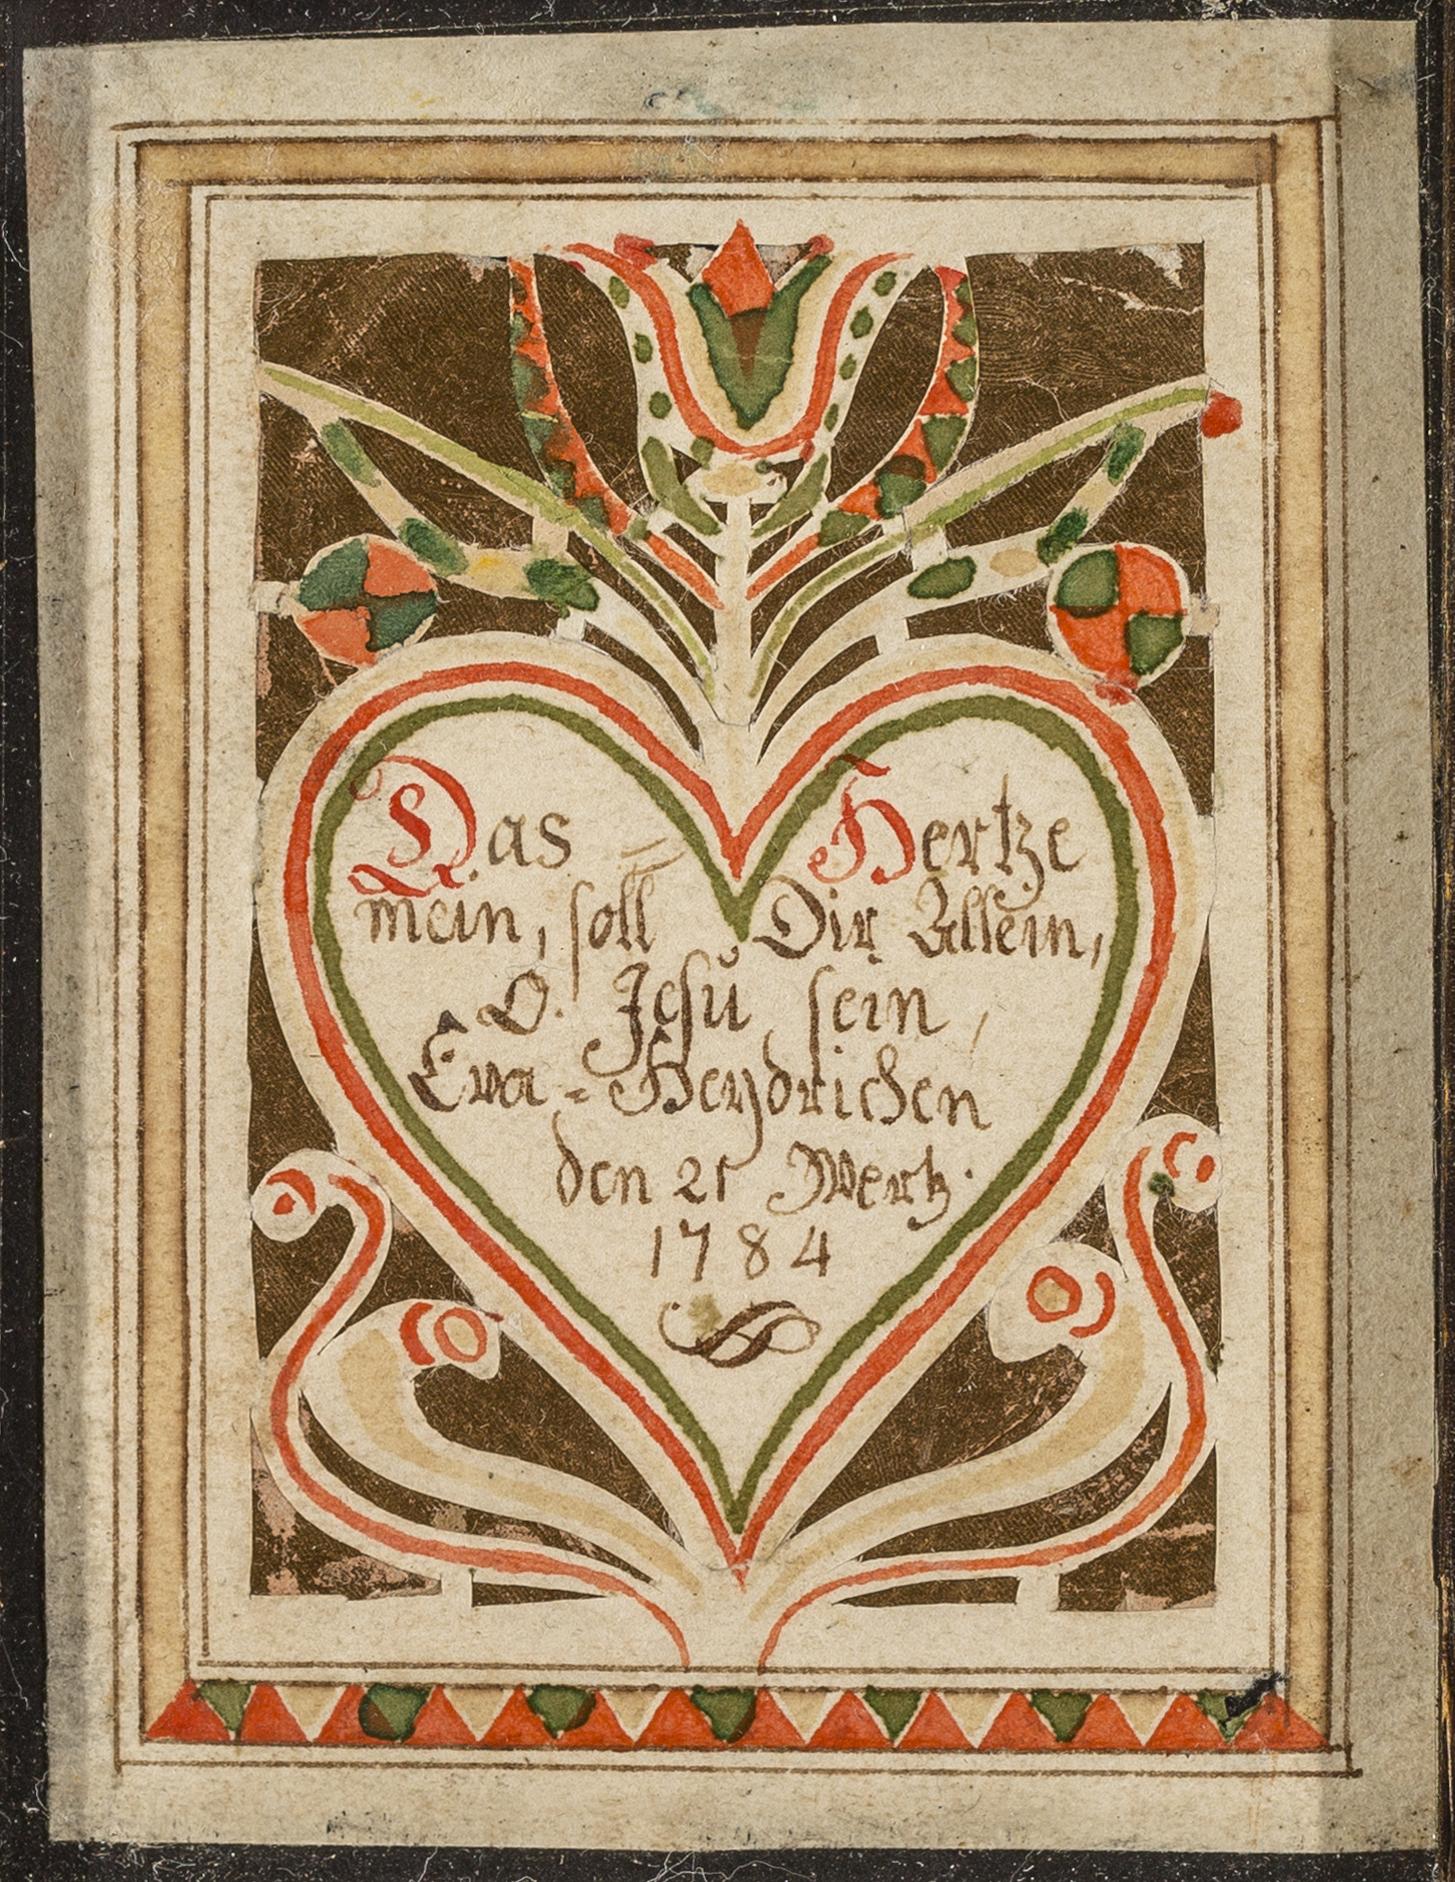 Das Hertze
mein, soll Dir Allein,
O. Jesu sein,
Eva - Heydrichen
den 21 Mertz.
1784